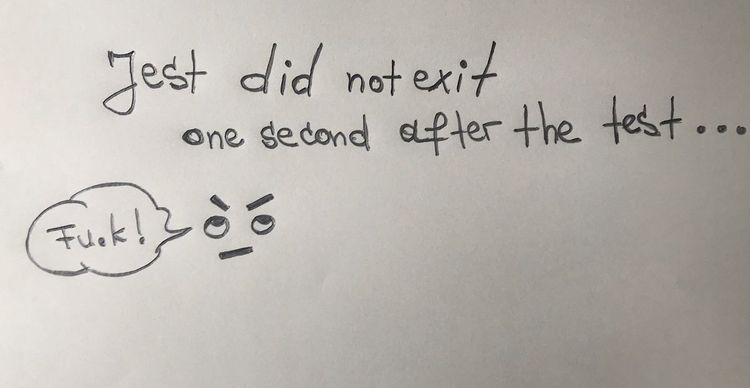 Jest did not exit
one second after the test...
Fuck!